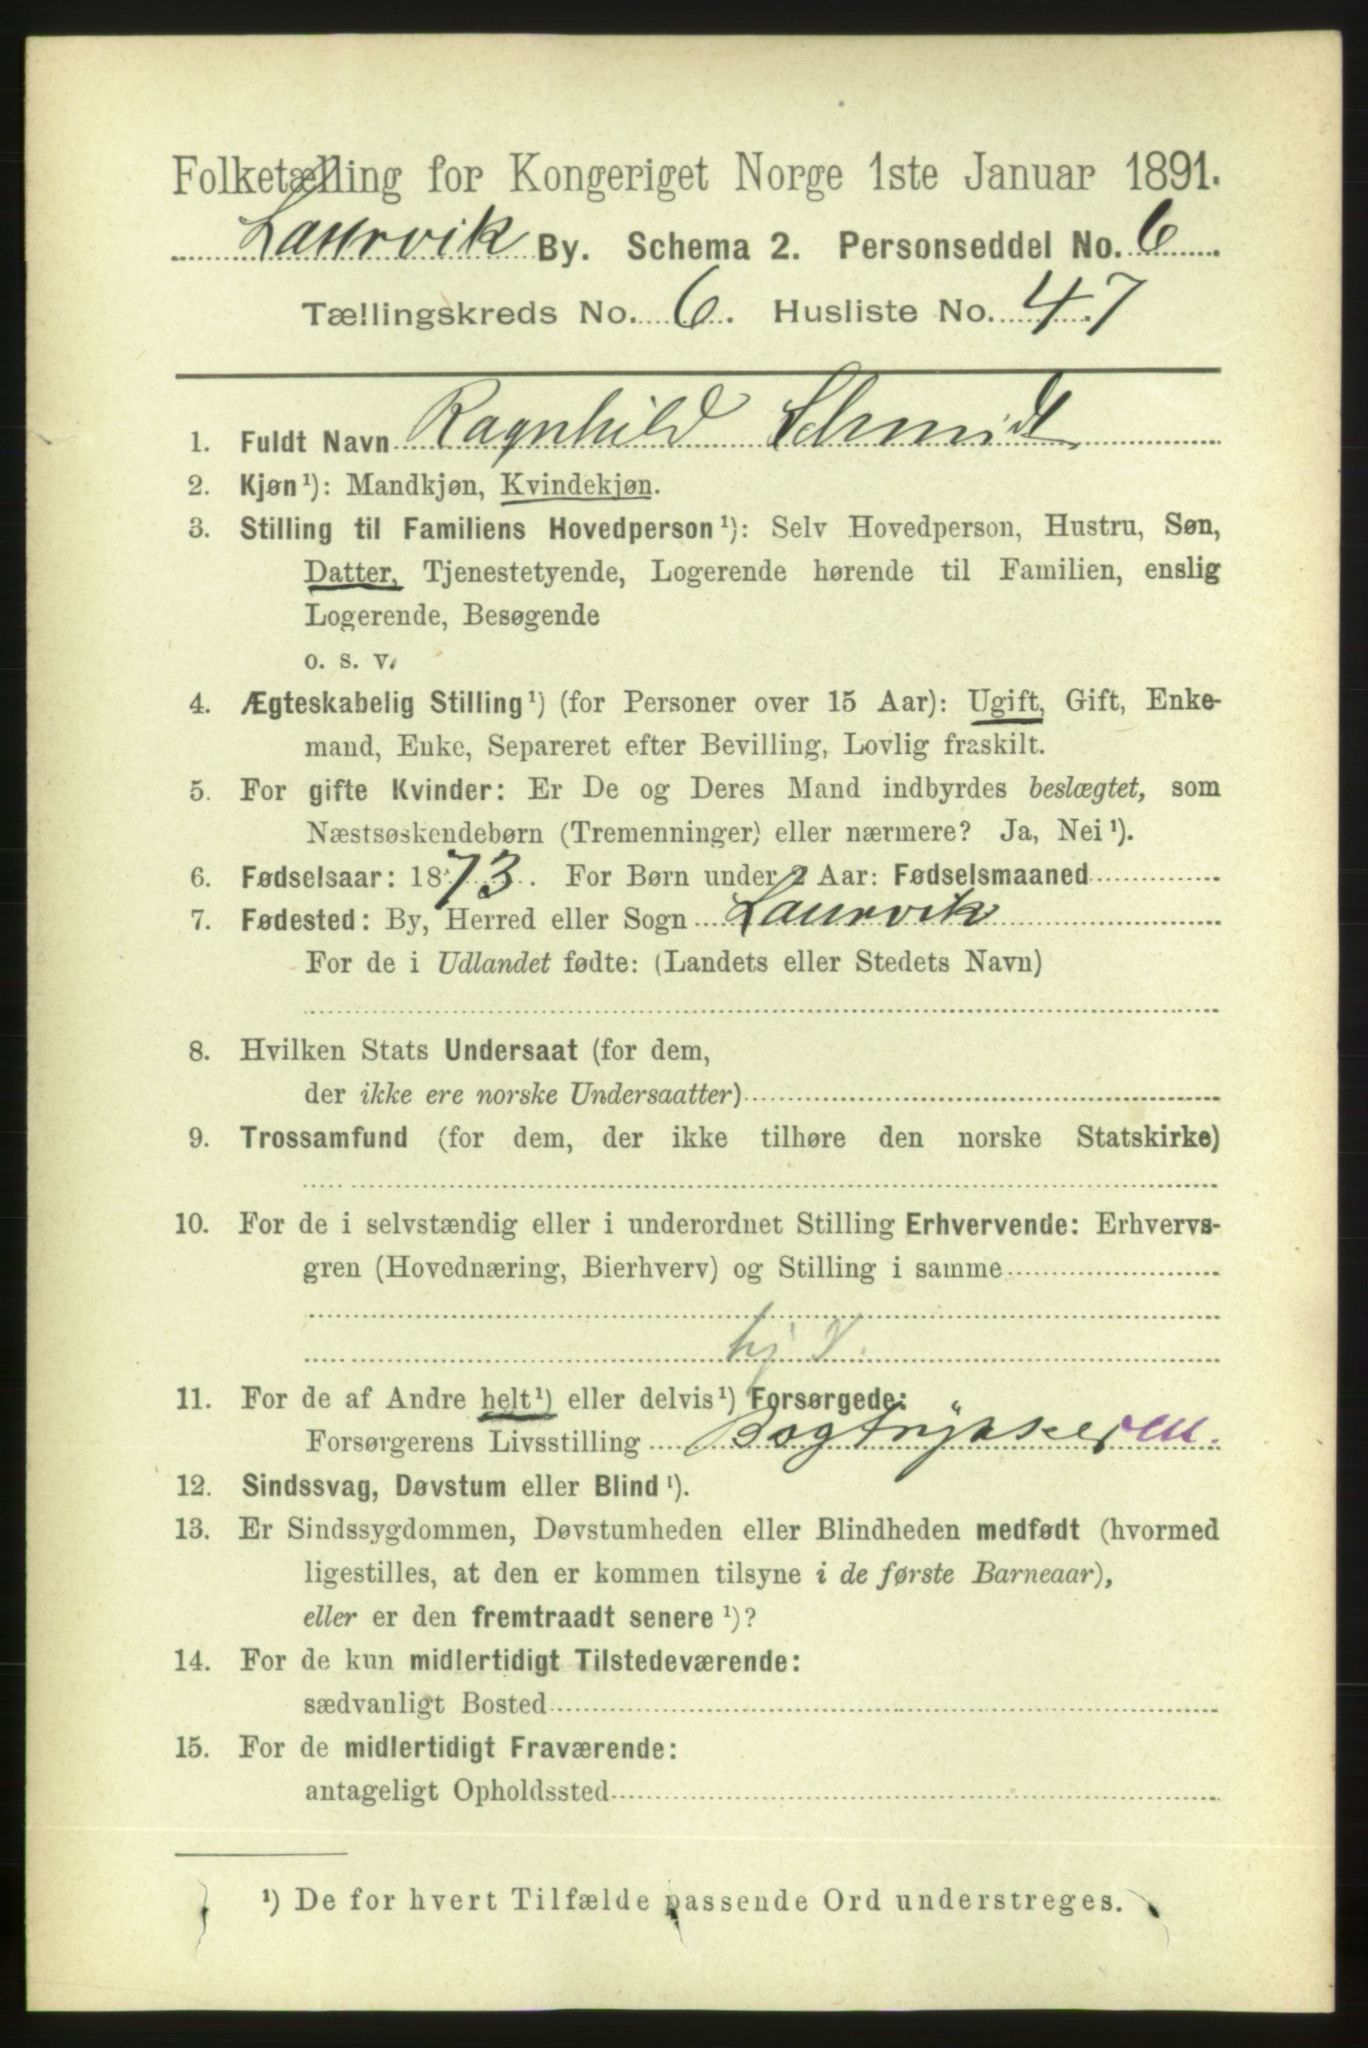 Folketælling for Kongeriget Norge 1ste Januar 1891.
Laurvik By. Schema 2. Personseddel No. 6
Tællingskreds No. 6. Husliste No. 47
1. Fuldt Navn Ragnhild Schmidt
2. Kjøn¹): Mandkjøn, Kvindekjøn.
3. Stilling til Familiens Hovedperson¹): Selv Hovedperson, Hustru, Søn,
Datter, Tjenestetyende, Logerende hørende til Familien, enslig
Logerende, Besøgende
o. s. v.
4. Ægteskabelig Stilling¹) (for Personer over 15 Aar): Ugift, Gift, Enke-
mand, Enke, Separeret efter Bevilling, Lovlig fraskilt.
5. For gifte Kvinder: Er De og Deres Mand indbyrdes beslægtet, som
Næstsøskendebørn (Tremenninger) eller nærmere? Ja, Nei¹).
6. Fødselsaar: 1873. For Børn under 2 Aar: Fødselsmaaned
7. Fødested: By, Herred eller Sogn Laurvik
For de i Udlandet fødte: (Landets eller Stedets Navn)
8. Hvilken Stats Undersaat (for dem,
der ikke ere norske Undersaatter)
9. Trossamfund (for dem, der ikke tilhøre den norske Statskirke)
10. For de i selvstændig eller i underordnet Stilling Erhvervende: Erhvervs-
gren (Hovednæring, Bierhverv) og Stilling i samme
hj
11. For de af Andre helt¹) eller delvis¹) Forsørgede:
Forsørgerens Livsstilling Bogtrykker m.
12. Sindssvag, Døvstum eller Blind¹).
13. Er Sindssygdommen, Døvstumheden eller Blindheden medfødt (hvormed
ligestilles, at den er kommen tilsyne i de første Barneaar),
eller er den fremtraadt senere¹)?
14. For de kun midlertidigt Tilstedeværende:
sædvanligt Bosted
15. For de midlertidigt Fraværende:
antageligt Opholdssted
¹) De for hvert Tilfælde passende Ord understreges.